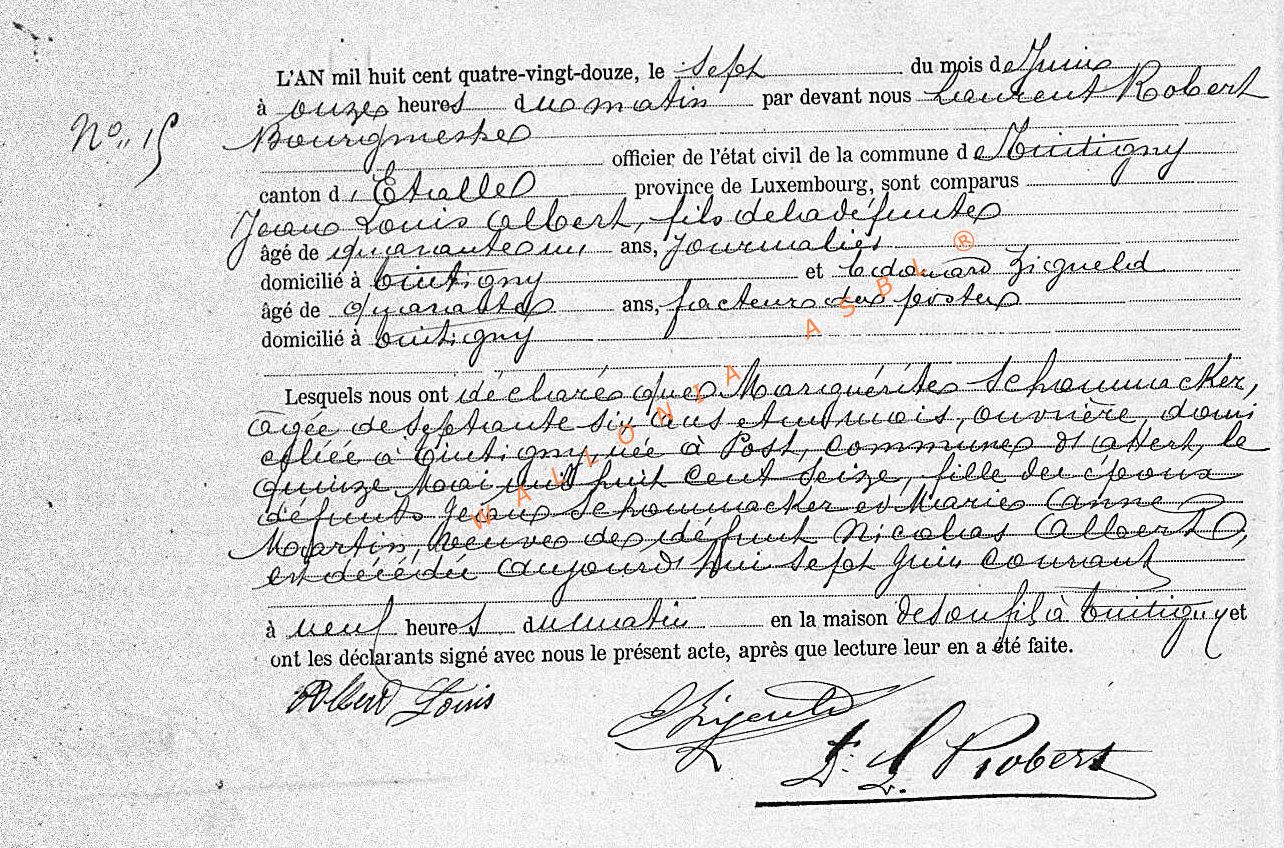 L'AN mil huit cent quatre-vingt-douze, le sept du mois de Juin
à onze heures du matin par devant nous Laurent Robert
No 15
Bourgmestre
officier de l'état civil de la commune de Tintigny
canton d'Etalle province de Luxembourg, sont comparus
Jean Louis Albert, fils de la défunte
âgé de quarante un ans, journalier
domicilié à Tintigny et Edouard
âgé de quarante ans, facteur des postes
domicilié à Tintigny
Lesquels nous ont déclaré que Marguérite Schommacker,
agée de septante six ans et un mois, ouvrière, domi
ciliée à Tintigny, née à Post, commune d'Attert, le
quinze Mai mil huit cent seize, fille des époux
défunts Jean Schommacker et Marie Anne
Martin, veuve de défunt Nicolas Albert,
est décédée aujourd'hui sept Juin courant
à neuf heures du matin en la maison de son fils à Tintigny et
ont les déclarants signé avec nous le présent acte, après que lecture leur en a été faite.
Albert Louis
L. Robert
WALLONIA ASBL ®